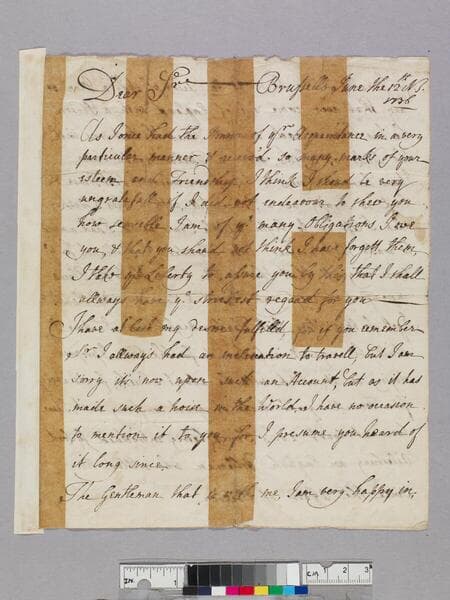 Dear Sr. Brussells June the 12th N.S.
1736
As I once had the Honour of yr. acquaintance in a very
particular manner, & receiv'd so many marks of your
esteem and Friendship, I think I shoud be very
ungratefull if I did not endeavour to shew you
how sensible I am of ye many Obligations I owe
you, & that you shoud not think I have forgett them,
I take ye Liberty to assure you by this that I shall
allways have ye strictest regard for you
I have at last my desire fulfilled for if you remember
Sr. I allways had an inclination to travell, but I am
sorry its now upon such an Account, but as it has
made such a noise in the World, I have no occasion
to mention it to you for I presume you heard of
it long since.
The Gentleman that is with me, I am very happy in,
IN. 1
CM 1 2 3